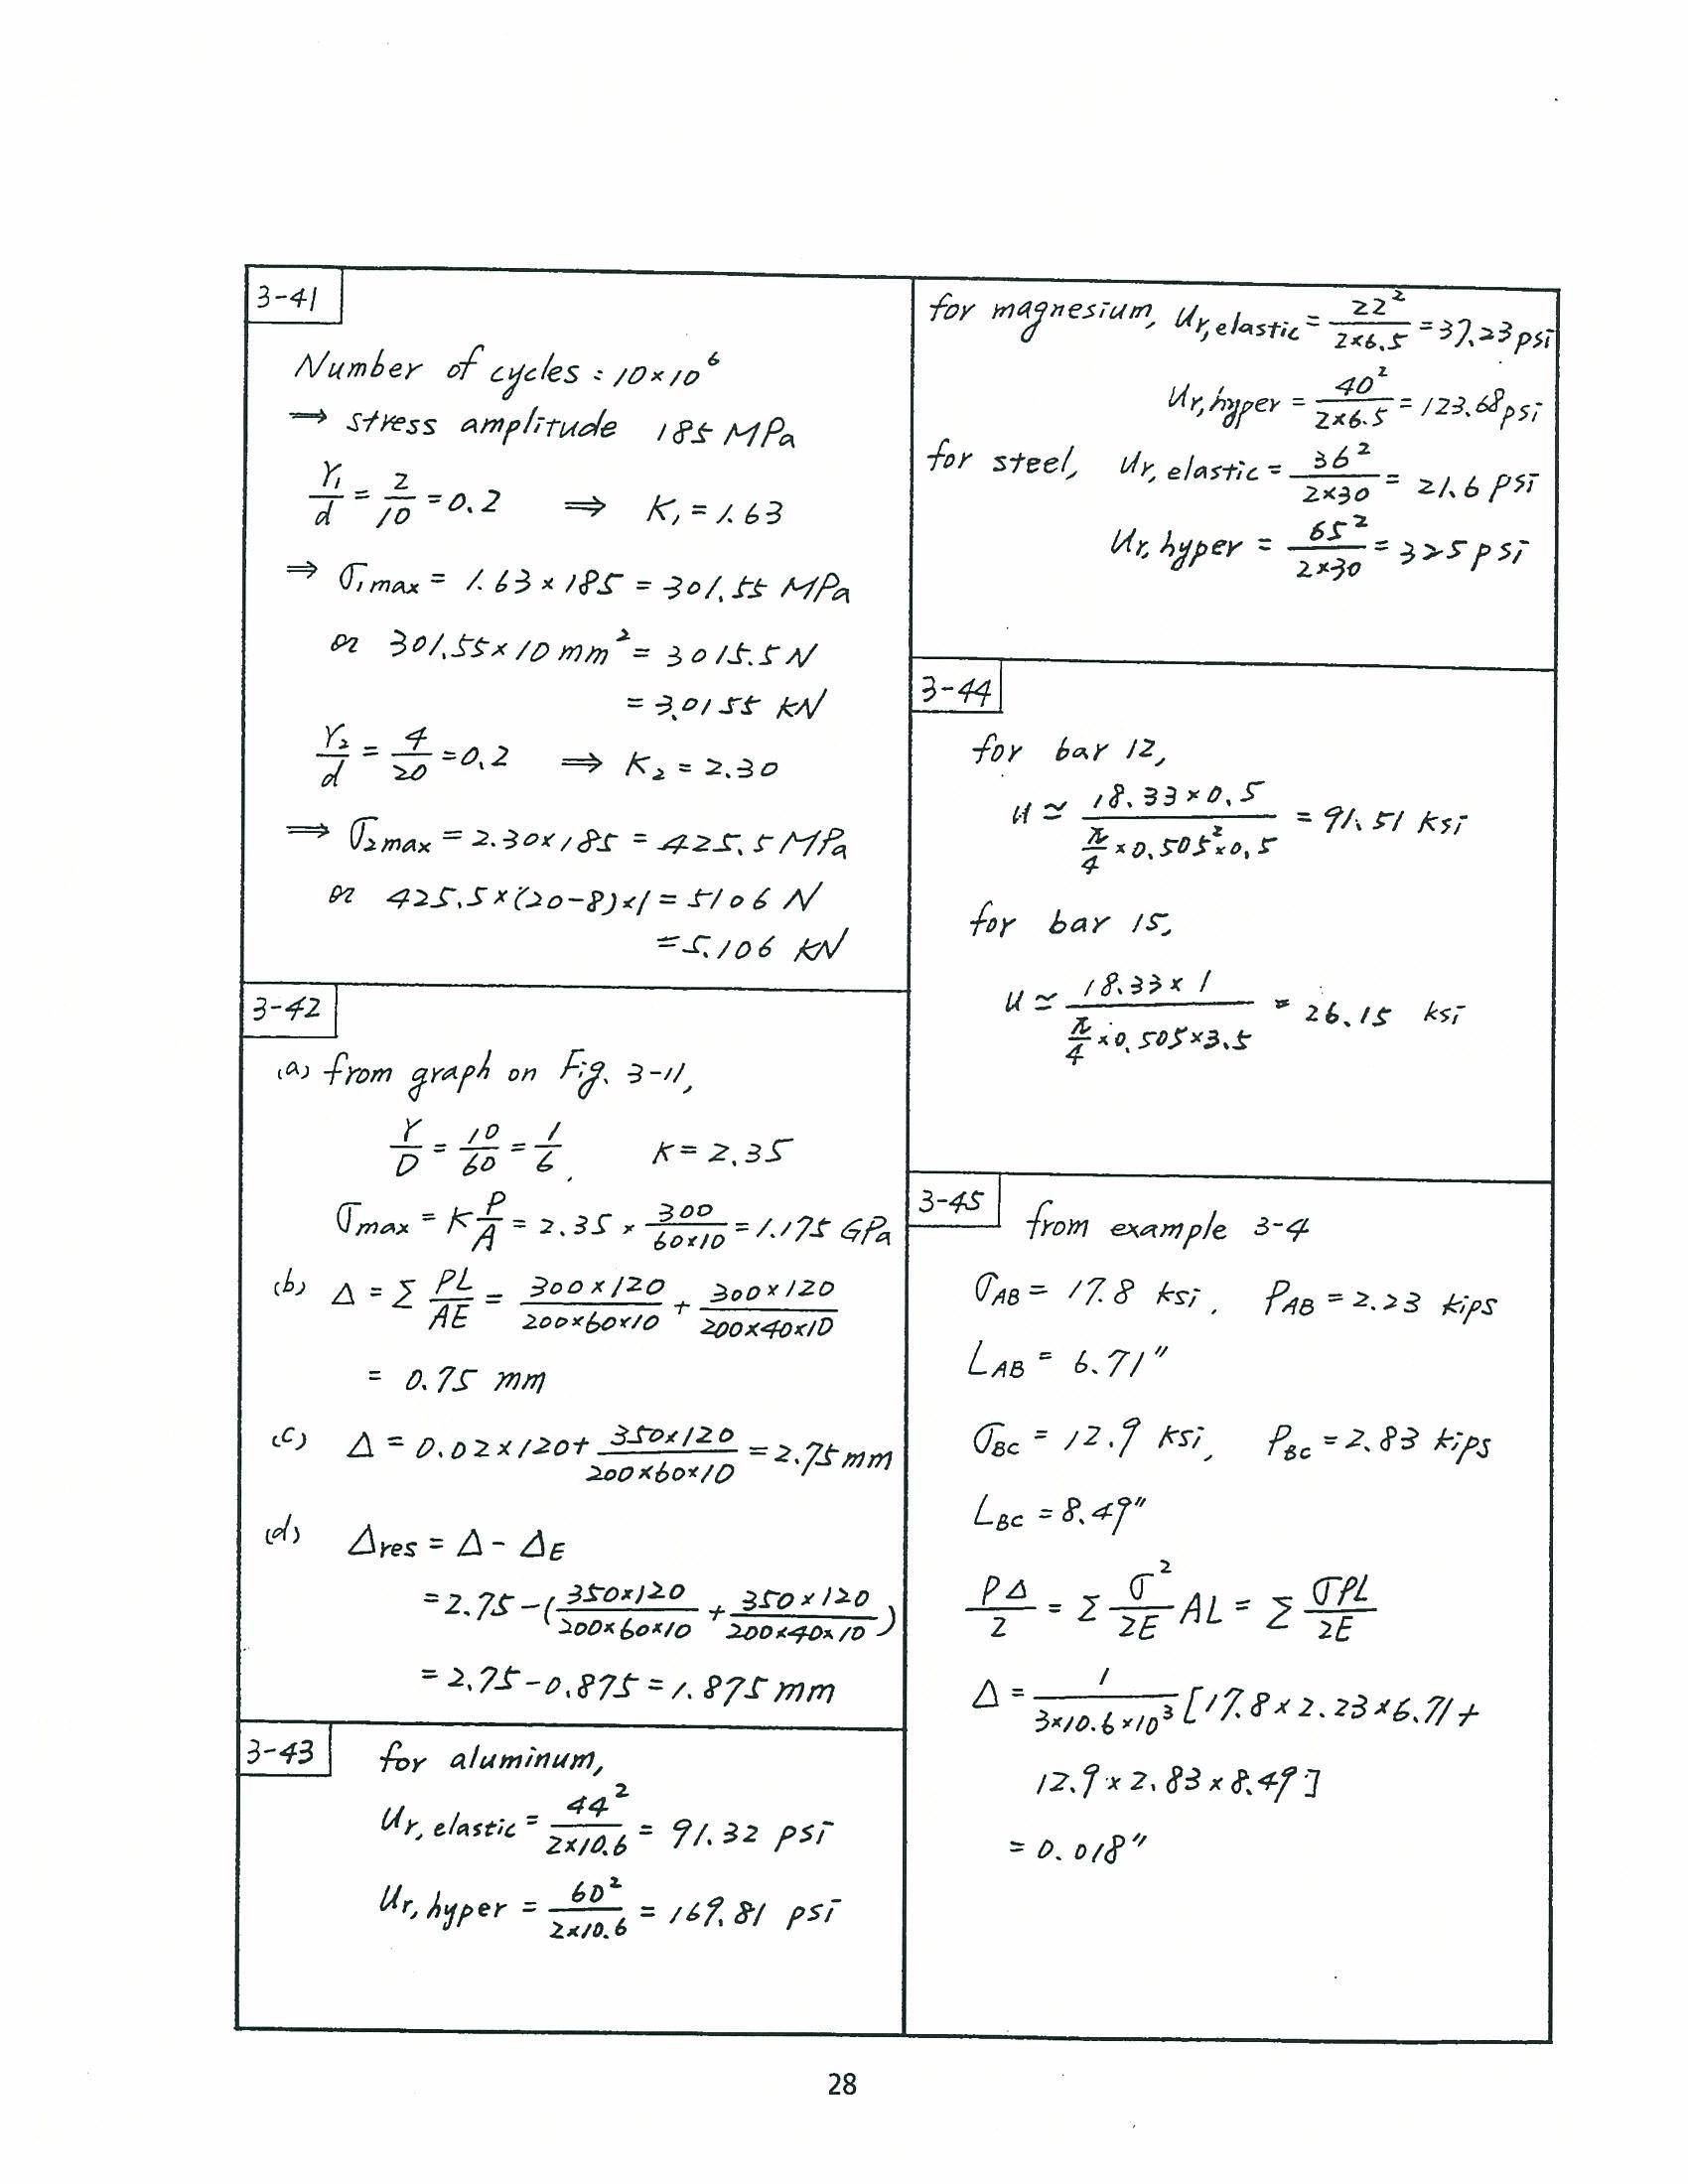 3-41
Number of cycles : 10×10⁶
⇒ stress amplitude 185 MPa
r₁/d = 2/10 = 0.2 ⇒ K₁ = 1.63
⇒ σ₁max = 1.63 × 185 = 301.55 MPa
or 301.55 × 10 mm² = 3015.5 N
= 3.0155 kN
r₂/d = 4/20 = 0.2 ⇒ K₂ = 2.30
⇒ σ₂max = 2.30 × 185 = 425.5 MPa
or 425.5 × (20-8) × 1 = 5106 N
= 5.106 kN
3-42
(a) from graph on Fig. 3-11,
r/D = 10/60 = 1/6, K = 2.35
σmax = K P/A = 2.35 × 300/60×10 = 1.175 GPa
(b) Δ = Σ PL/AE = 300×120/200×60×10 + 300×120/200×40×10
= 0.75 mm
(c) Δ = 0.02×120 + 350×120/200×60×10 = 2.75 mm
(d) Δres = Δ - ΔE
= 2.75 - (350×120/200×60×10 + 350×120/200×40×10)
= 2.75 - 0.875 = 1.875 mm
3-43 for aluminum,
Ur, elastic = 44²/2×10.6 = 91.32 psi
Ur, hyper = 60²/2×10.6 = 169.81 psi
for magnesium, Ur, elastic = 22²/2×6.5 = 37.23 psi
Ur, hyper = 40²/2×6.5 = 123.68 psi
for steel, Ur, elastic = 36²/2×30 = 21.6 psi
Ur, hyper = 65²/2×30 = 325 psi
3-44
for bar 12,
u ≃ 18.33×0.5/π/4×0.505²×0.5 = 91.51 ksi
for bar 15,
u ≃ 18.33×1/π/4×0.505×3.5 = 26.15 ksi
3-45 from example 3-4
σAB = 17.8 ksi, PAB = 2.23 kips
LAB = 6.71"
σBC = 12.9 ksi, PBC = 2.83 kips
LBC = 8.49"
PΔ/2 = Σ σ²/2E AL = Σ σPL/2E
Δ = 1/3×10.6×10³ [17.8×2.23×6.71 +
12.9×2.83×8.49]
= 0.018"
28